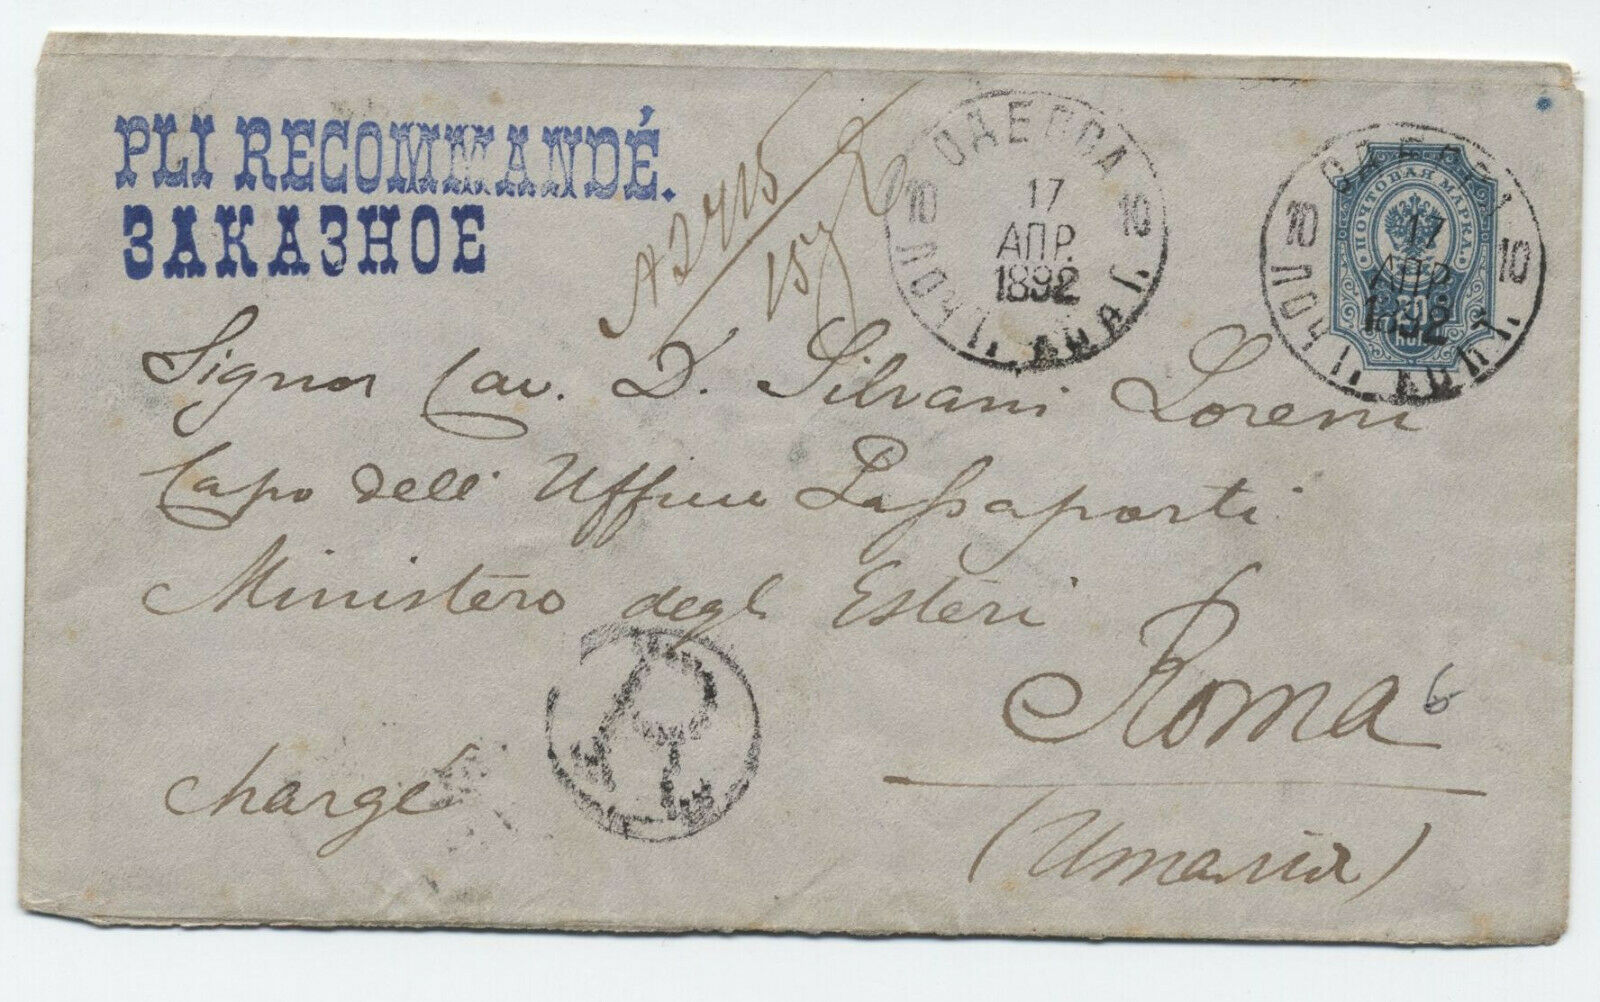 PLI RECOMMANDÉ.
ЗАКАЗНОЕ
ОДЕССА
10 17 10
АПР.
1892
ПОЧТОВАЯ МАРКА
ОДЕССА
10 17 10
АПР.
1892
20
Signor Cav. D. Silvani Loreni
Capo dell' Ufficio Passaporti
Ministero degli Esteri
Roma 6
Chargé
R